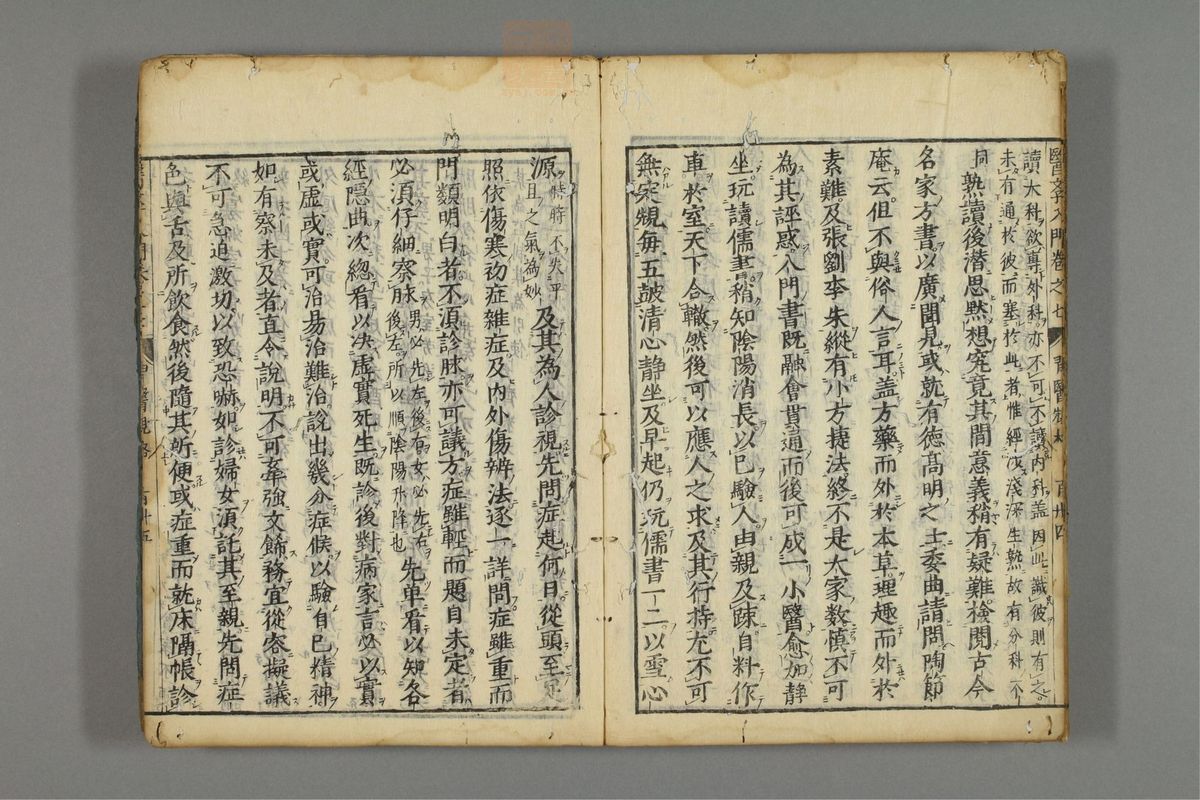 醫學入門卷之七 習醫規格 百卅四
讀大科欲專外科亦不可不讀內科蓋因此識彼則有之
未有通於彼而塞於此者惟經涉淺深生熟故有分科不
同熟讀後潛思默想究竟其間意義稍有疑難檢閱古今
名家方書以廣聞見或就有德高明之士委曲請問陶節
庵云但不與俗人言耳蓋方藥而外於本草理趣而外於
素難及張劉李朱縱有小方捷法終不是大家數慎不可
為其誣惑入門書既融會貫通而後可成一小醫愈加靜
坐玩讀儒書稍知陰陽消長以己驗人由親及踈自料作
車於室天下合轍然後可以應人之求及其行持尤不可
無定規每五鼓清心靜坐及早起仍玩儒書一二以雪心
源時時不失平
旦之氣為妙
及其為人診視先問症起何日從頭至足
照依傷寒初症雜症及內外傷辨法逐一詳問症雖重而
門類明白者不須診脉亦可議方症雖輕而題目未定者
必須仔細察脉
男必先左後右女必先右
後左所以順陰陽升降也
先单看以知各
經隱曲次總看以决虛實死生既診後對病家言必以實
或虛或實可治易治難治說出幾分症候以驗自己精神
如有察未及者直令說明不可牽強文飾務宜從容擬議
不可急迫激切以致恐嚇如診婦女須託其至親先問症
色與舌及所飲食然後隨其所便或症重而就床隔帳診